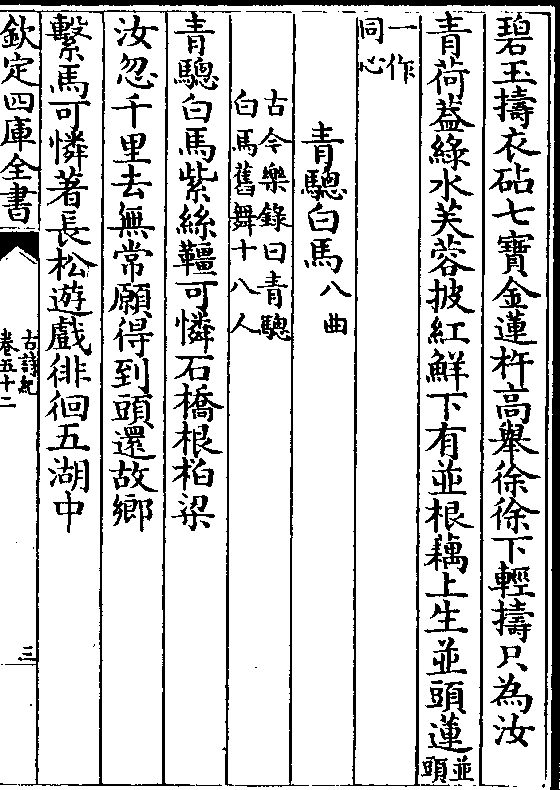 碧玉擣衣砧七寶金蓮杵高舉徐徐下輕擣只為汝
青荷葢綠水芙蓉披紅鮮下有並根藕上生並頭蓮並頭
一作
同心
青驄白馬八曲
古今樂錄曰青驄
白馬舊舞十八人
青驄白馬紫絲韁可憐石橋根柏梁
汝忽千里去無常願得到頭還故鄉
繫馬可憐著長松遊戲徘徊五湖中
欽定四庫全書
古詩紀
卷五十二
三